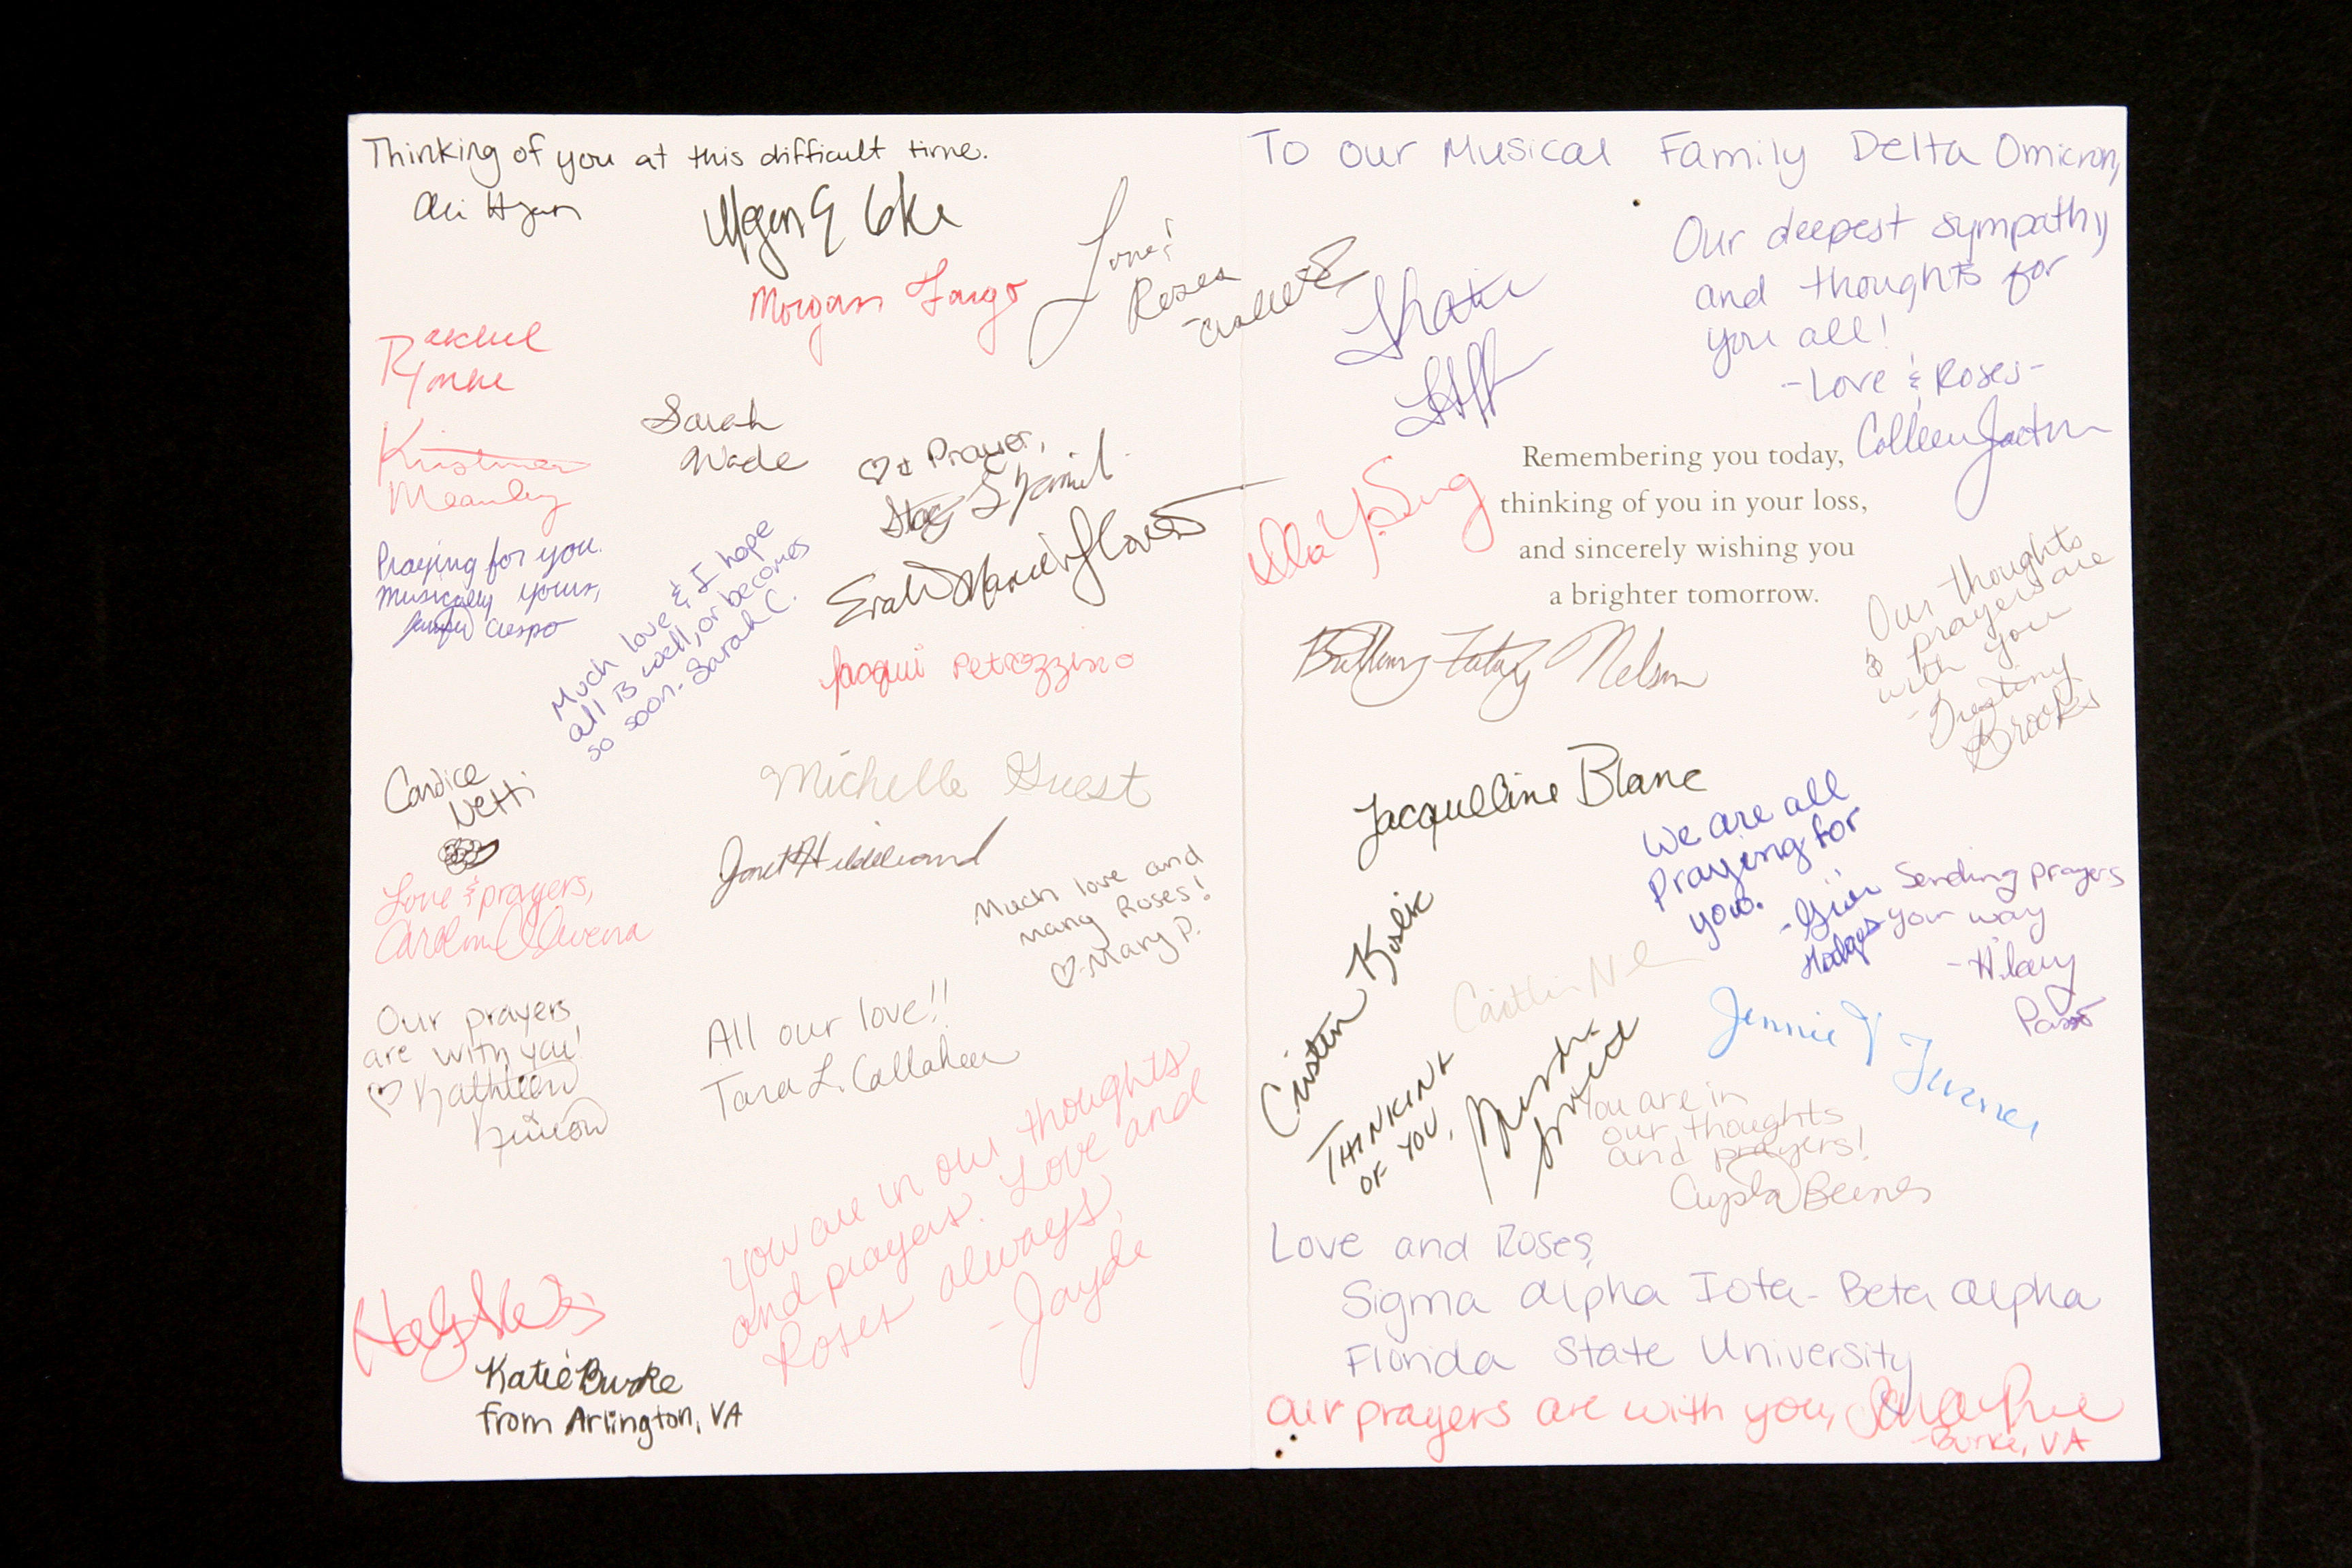 Thinking of you at this difficult time.
Morgan Fargo
Love &
Roses
Rachel
Kristina
Meanley
Sarah
Wade
♡ & Prayer,
Praying for you.
Musically yours,
Jennifer Crespo
Much love & I hope
all is well, or becomes
so soon. Sarah C.
Jacqui Petrozzino
Candice
Netti
Michelle Guest
Janet Hildebrand
Love & prayers,
Much love and
many Roses!
♡-Mary P.
Our prayers
are with you!
♡ Kathleen
All our love!!
Tara L. Callahan
You are in our thoughts
and prayers. Love and
Roses always,
-Jayde
Katie Burke
from Arlington, VA
To our Musical Family Delta Omicron,
Our deepest sympathy
and thoughts for
you all!
-Love & Roses-
Colleen
Remembering you today,
thinking of you in your loss,
and sincerely wishing you
a brighter tomorrow.
Our thoughts
& prayers are
with you
Brooks
Brittany Nelson
Jacquelline Blane
We are all
praying for
you.
Hodges
Sending prayers
your way
-Hilary
Cristen
Caitlin
Jennie Turner
THINKING
OF YOU,
You are in
our thoughts
and prayers!
Love and Roses,
Sigma Alpha Iota - Beta Alpha
Florida State University
Our prayers are with you,
-Burke, VA